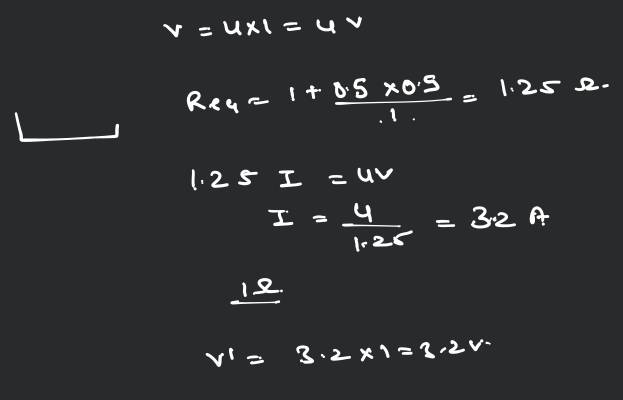 V = 4x1 = 4 V
Req = 1 + 0.5 x0.5 / 1 = 1.25 Ω.
1.25 I = 4V
I = 4 / 1.25 = 3.2 A
1Ω
V' = 3.2 x 1 = 3.2 V.